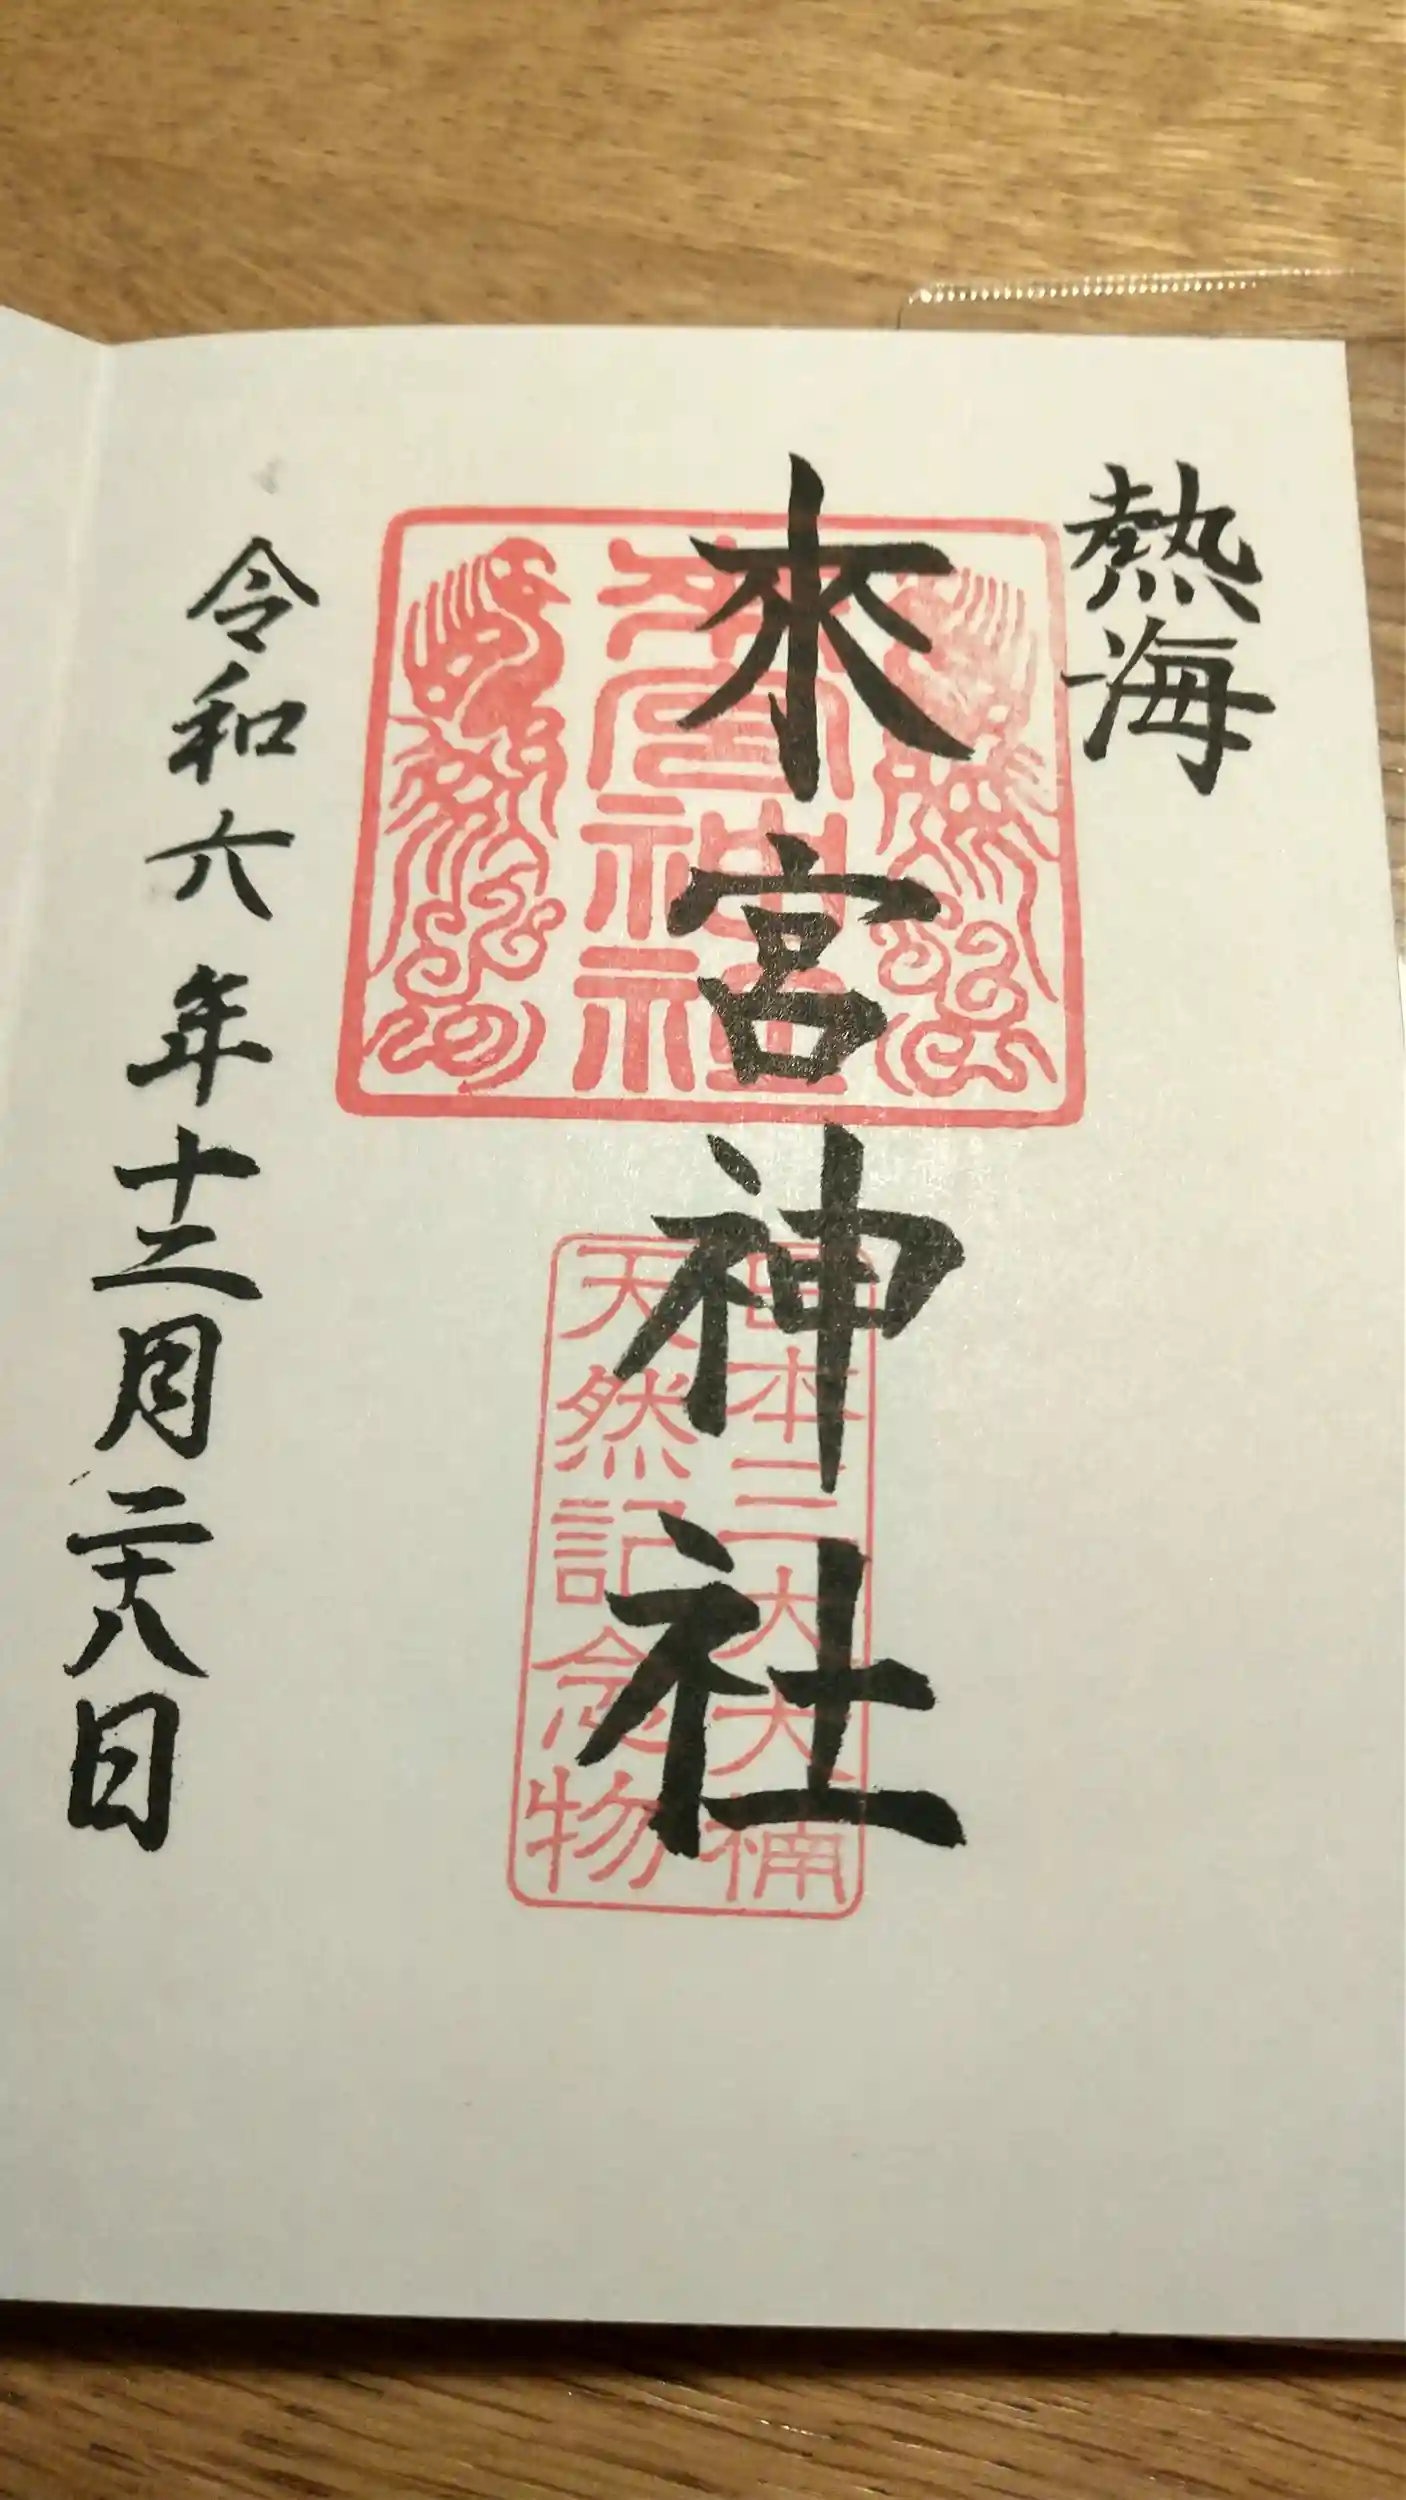 熱海
來宮神社
來宮神社
日本三大大楠
天然記念物
令和六年十二月二十八日